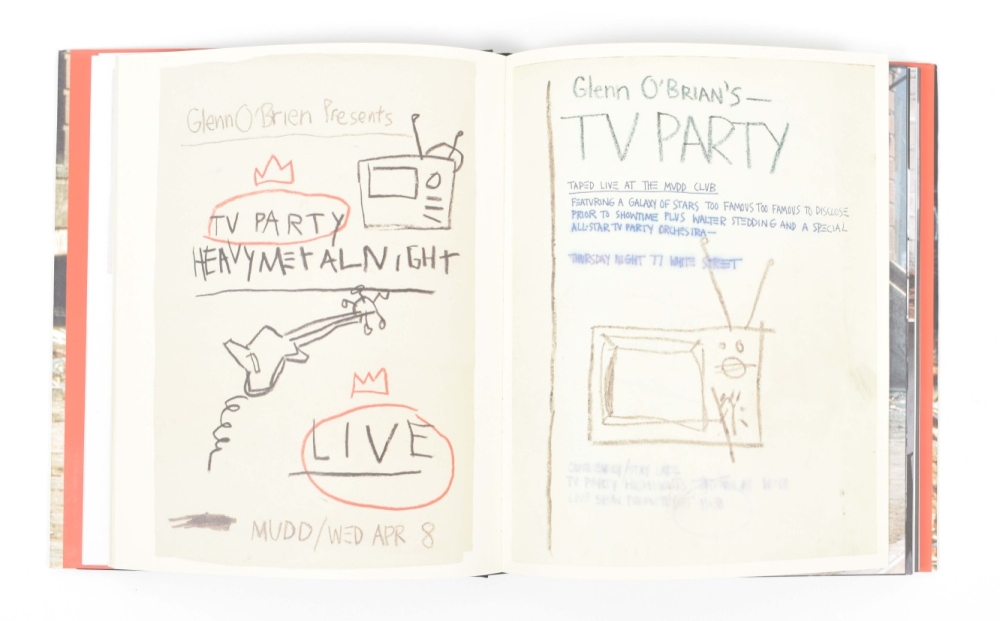 Glenn O'Brien Presents
TV PARTY
HEAVY METAL NIGHT
LIVE
MUDD/WED APR 8
Glenn O'BRIAN'S—
TV PARTY
TAPED LIVE AT THE MUDD CLUB
FEATURING A GALAXY OF STARS TOO FAMOUS TOO FAMOUS TO DISCLOSE
PRIOR TO SHOWTIME PLUS WALTER STEDDING AND A SPECIAL
ALL-STAR TV PARTY ORCHESTRA—
THURSDAY NIGHT 77 WHITE STREET
TV PARTY